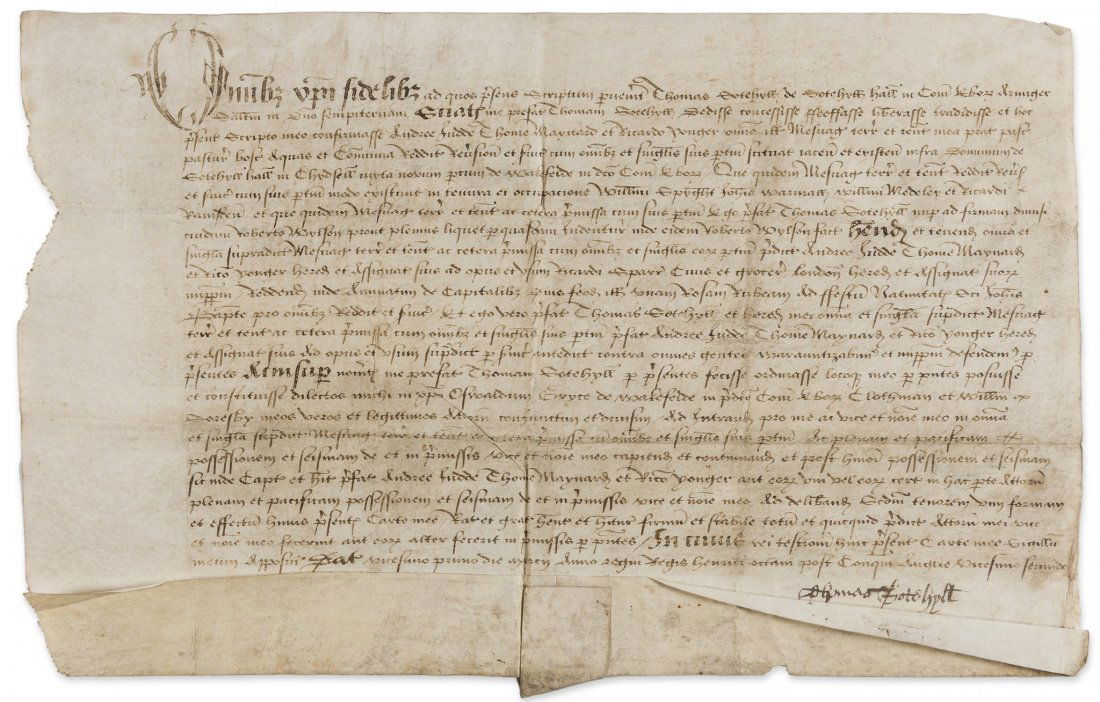 Omibz xpi fidelibz ad quos p'sens Scriptum pervenit Thomas Sotehyll de Sotehyll hall in Com Ebor Armiger
Saltm in Dno sempiternam Sciatis me prefat Thomam Sotehyll Dedisse concessisse ffeoffasse liberasse tradidisse et hoc
p'senti Scripto meo confirmasse Andree Judde Thome Maynard et Ricardo yonger omia ill Mesuag terr et tent mea prat pasc
pastur bosc Aquas et Comuna Reddit Rev'sion et s'vic cum omibz et singlis suis p'tin scituat iacen et existen infra Dominium de
Sotehyll hall in Chydsell iuxta novum parcum de Wakefelde in dco Com Ebor Que quidem Mesuag terr et tent Reddit rev's
et s'vic cum suis p'tin modo existunt in tenura et occupacione Willmi Spyght Johis Warmall Willmi Medeley et Ricardi
Ramsden et que quidem Mesuag terr et tent ac cetera p'missa cum suis p'tin Ego p'fat Thomas Sotehyll nup ad firmam dimisi
cuidam Roberto Wylson prout plenius liquet p quasdam Indentur inde eidem Roberto Wylson fact Hend et tenend omia et
singla supradict Mesuag terr et tent ac cetera p'missa cum omibz et singlis eorz p'tin p'dict Andree Judde Thome Maynard
et Rico yonger hered et Assignat suis ad opus et usum Ricardi Sparr Civis et Grocer London hered et Assignat suorz
imppm Reddend inde Annuatim de Capitalibz Dnis feod ill unam Rosam Rubeam Ad ffestum Nativitat Sci Johis
Bapte pro omibz Reddit et s'vic Et ego vero p'fat Thomas Sotehyll et hered mei omia et singla sup'dict Mesuag
terr et tent ac cetera p'missa cum omibz et singlis suis p'tin p'fat Andree Judde Thome Maynard et Rico yonger hered
et Assignat suis Ad opus et usum sup'dict p s'vic antedict contra omnes gentes Warantizabim et imppm defendem p
p'sentes Ac insup nov'itis me prefat Thomam Sotehyll p p'sentes fecisse ordinasse locoq meo p p'ntes posuisse
et constituisse dilectos michi in xpo Oswaldum Gryce de Wakefelde in p'dco Com Ebor Clothman et Willm
Soresby meos veros et legittimos Attorn coniunctim et divisim Ad Intrand pro me ac vice et noie meo in omia
et singla sup'dict Mesuag terr et tent ac cetera p'missa cum omibz et singlis suis p'tin Ac plenam et pacificam
possessionem et seisinam de et in p'missis vice et noie meo capiend et continuand et post hmoi possessionem et seisinam
sic inde Capt et hit p'fat Andree Judde Thome Maynard et Rico yonger aut eorz uni vel eorz cert in hac pte Attorn
plenam et pacificam possessionem et seisinam de et in p'missis vice et noie meo Ad delib'and Scdm tenorem vim formam
et effectum huius p'sent Carte mee Rat et grat hent et hitur firmum et stabile totum et quicquid p'dict Attorn mei vice
et noie meo fecerint aut eorz alter fecerit in p'missis p p'ntes In cuius rei testioniu huic p'sent Carte mee Sigillu
meum apposui Dat vicesimo primo die Anno regni Regis Henrici octavi post Conqm Anglie vicesimo
Thomas Sotehyll